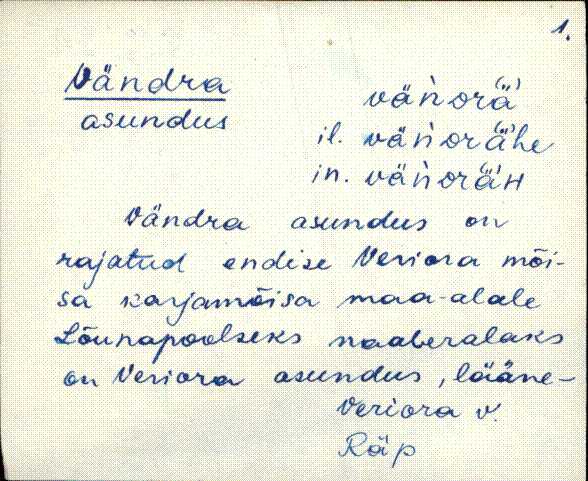 1.
Vändra
asundus
vän̆orä(ä)
il. vän̆orä(ä)he
in. vän̆orä(ä)н
Vändra asundus on
rajatud endise Veriora mõi-
sa karjamõisa maa-alale
Lõunapoolseks naaberalaks
on Veriora asundus, lääne-
Veriora v.
Räp